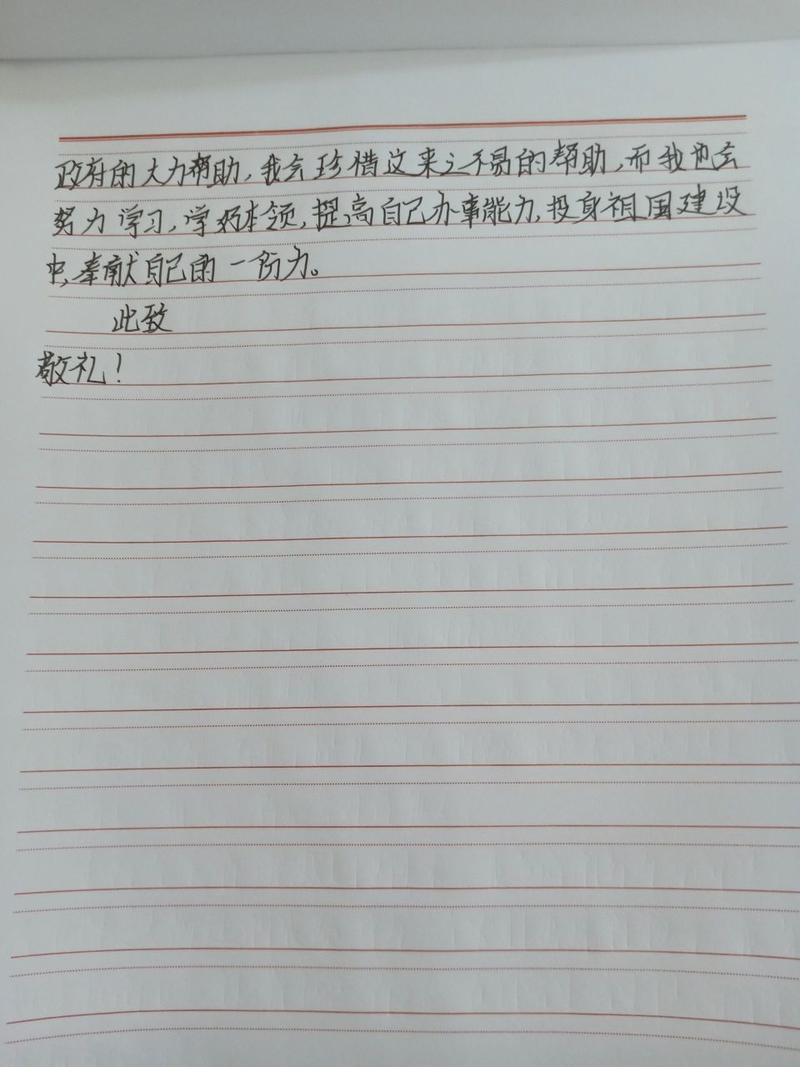 政府的大力帮助,我会珍惜这来之不易的帮助,而我也会
努力学习,学好本领,提高自己办事能力,投身祖国建设
中,奉献自己的一份力。
此致
敬礼!